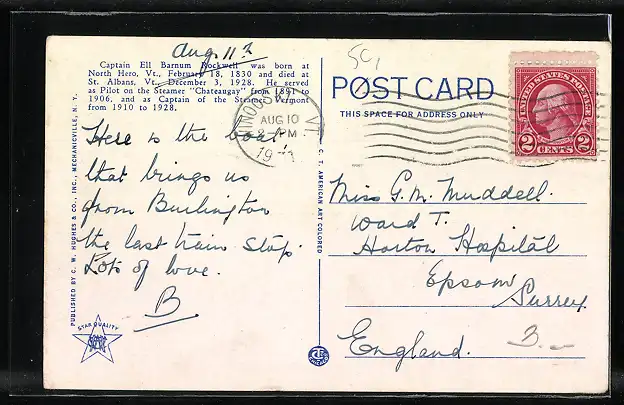 Aug. 11th
Captain Ell Barnum Rockwell was born at
North Hero, Vt., February 18, 1830 and died at
St. Albans, Vt., December 3, 1928. He served
as Pilot on the Steamer "Chateaugay" from 1891 to
1906, and as Captain of the Steamer Vermont
from 1910 to 1928.
Here is the boat
that brings us
from Burlington
the last train stop.
Lots of love.
B
PUBLISHED BY C. W. HUGHES & CO., INC., MECHANICVILLE, N. Y.
STAR QUALITY
C. T. AMERICAN ART COLORED
POST CARD
THIS SPACE FOR ADDRESS ONLY
VT.
AUG 10
PM
UNITED STATES POSTAGE
2 CENTS 2
Miss G. M. Muddell.
Ward T.
Horton Hospital
Epsom
Surrey
England.
3.—